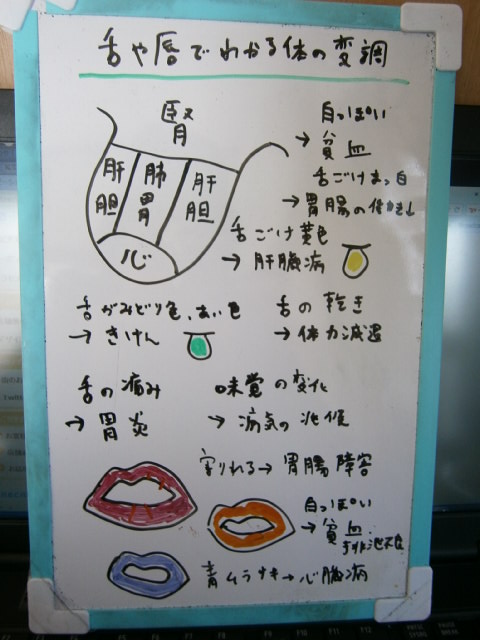 舌や唇でわかる体の変調
腎
肝胆
肺胃
肝胆
心
白っぽい
→ 貧血
舌ごけまっ白
→ 胃腸の
舌ごけ黄色
→ 肝臓病
舌がみどり色、あい色
→ きけん
舌の乾き
→ 体力減退
舌の痛み
→ 胃炎
味覚の変化
→ 病気の兆候
割れる→ 胃腸障害
白っぽい
→ 貧血
青ムラサキ→ 心臓病